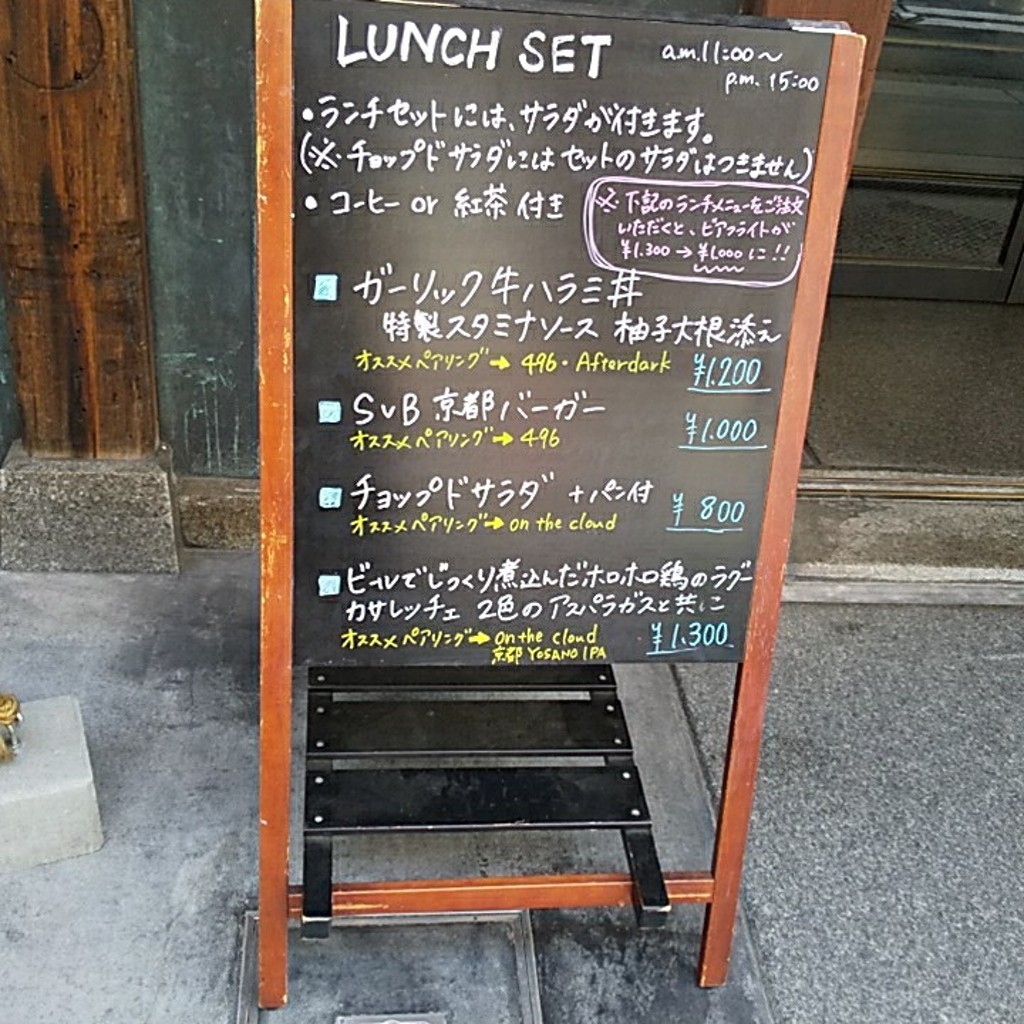 LUNCH SET a.m.11:00〜
p.m. 15:00
・ランチセットには、サラダが付きます。
(※チョップドサラダにはセットのサラダはつきません)
・コーヒー or 紅茶 付き
※下記のランチメニューをご注文
いただくと、ビアフライトが
¥1.300→¥1.000に!!
ガーリック牛ハラミ丼
特製スタミナソース 柚子大根添え
オススメペアリング→ 496・Afterdark ¥1.200
SVB 京都バーガー
オススメペアリング→ 496 ¥1.000
チョップドサラダ +パン付
オススメペアリング→ on the cloud ¥800
ビールでじっくり煮込んだホロホロ鶏のラグー
カサレッチェ 2色のアスパラガスと共に
オススメペアリング→ on the cloud ¥1.300
京都 YOSANO IPA